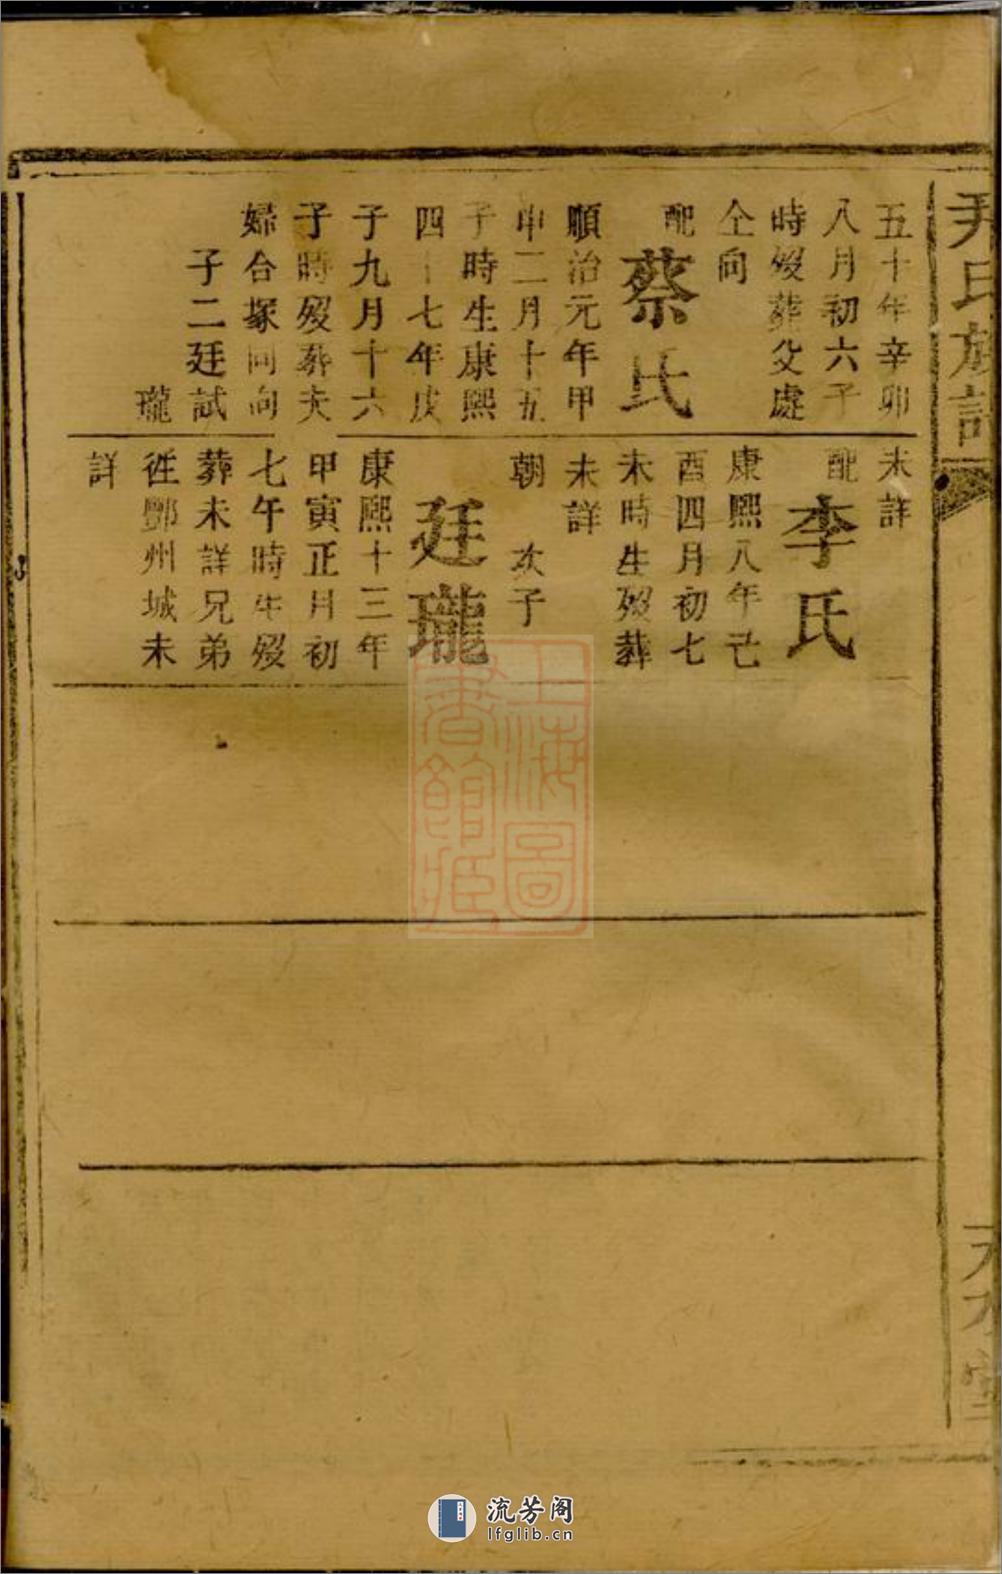 尹氏族譜
五十年辛卯
八月初六子
時歿葬父處
仝向
配蔡氏
順治元年甲
申二月十五
子時生康熙
四十七年戊
子九月十六
子時歿葬夫
婦合塚同向
子二廷試
瓏
未詳
配李氏
康熙八年己
酉四月初七
未時生歿葬
未詳
朝 次子
廷瓏
康熙十三年
甲寅正月初
七午時生歿
葬未詳兄弟
徃酆州城未
詳
天水堂
上海圖
書館藏
流芳阁
lfglib.cn